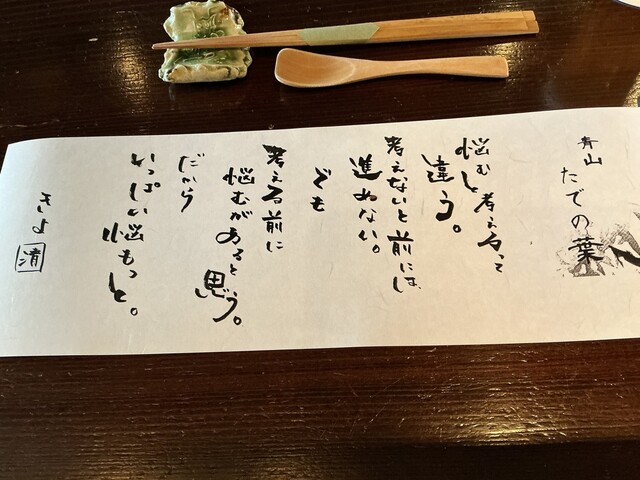 青山
たでの葉
悩むと考えるって
違う。
考えないと前には、
進めない。
でも
考える前に
悩むがあると思う。
だから
いっぱい悩もっと。
きよ
清